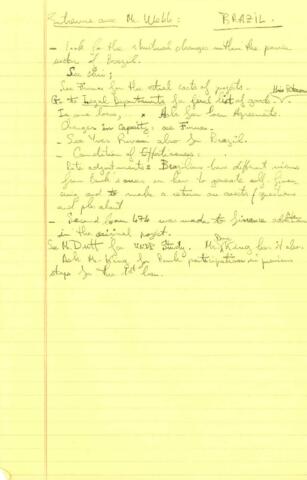 Interview with Mr. Webb: BRAZIL.
- Look for the structural changes within the power
sector of Brazil.
See this;
See Finne for the actual costs of projects.
Go to Legal Department for final list of goods.
In one loan, * Ask for Loan Agreements.
Changes in Capacity: see Finne.
- See Yves Rovani also for Brazil.
- Condition of Effectiveness:
Rate adjustments: Brazilian has different views
from bank's on how to generate self finan
cing and to make a return on assets/questions
- Second loan 474 was made to finance addition
in the original project.
See McDutt for UNDP Study. Mr. King has it also.
Ask Mr. King for Bank participation in previous
steps for the 1st loan.